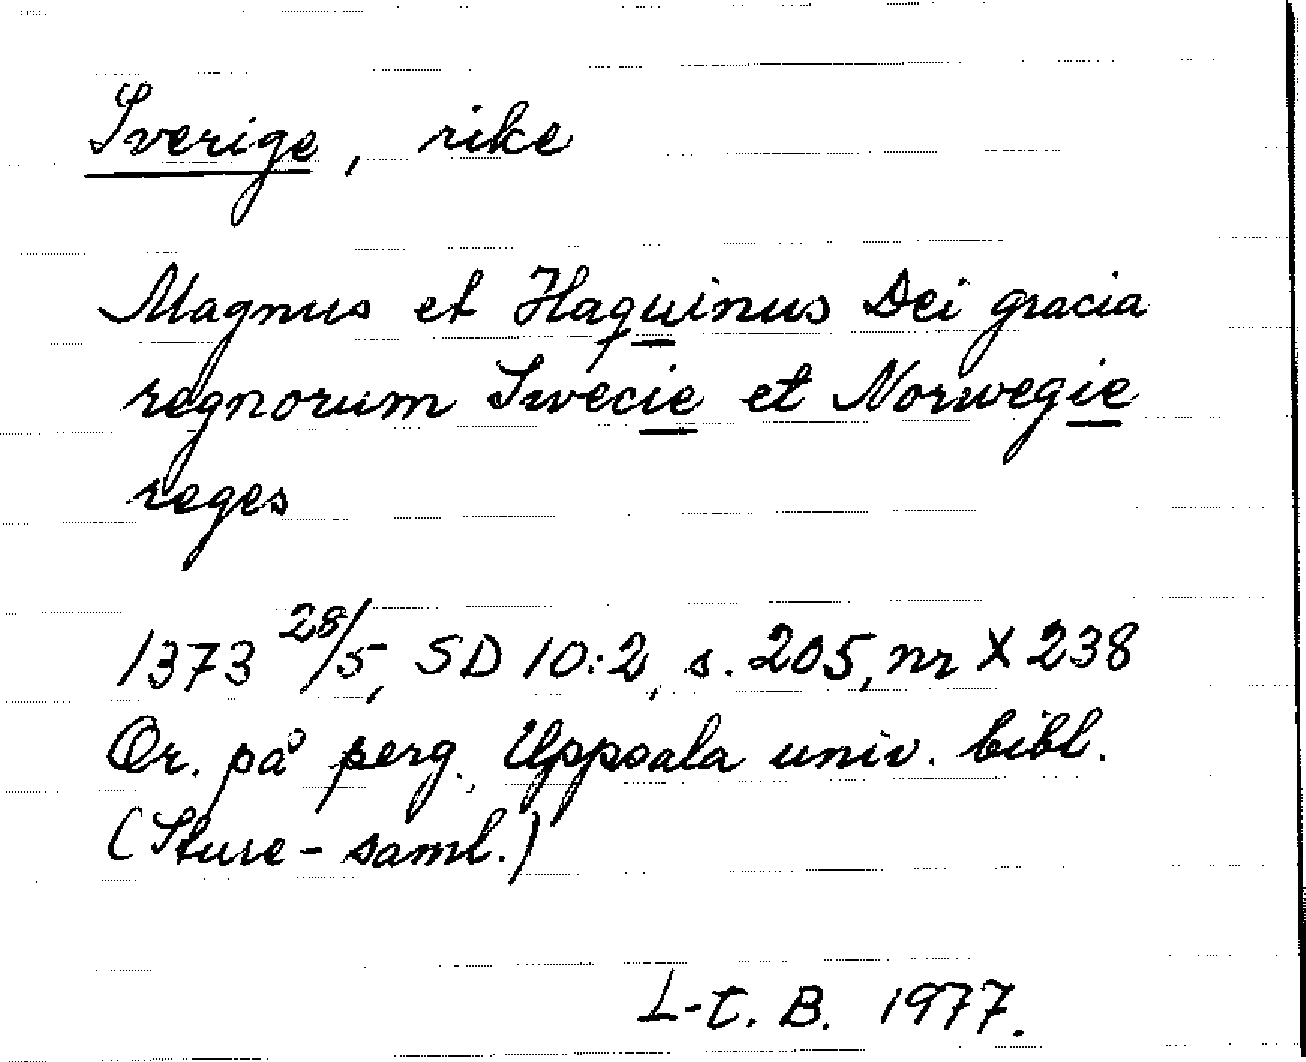 Sverige, rike
Magnus et Haquinus Dei gracia
regnorum Swecie et Norwegie
reges
1373 28/5, SD 10:2, s. 205, nr X 238
Or. på perg., Uppsala univ. bibl.
(Sture-saml.)
L-t. B. 1977.